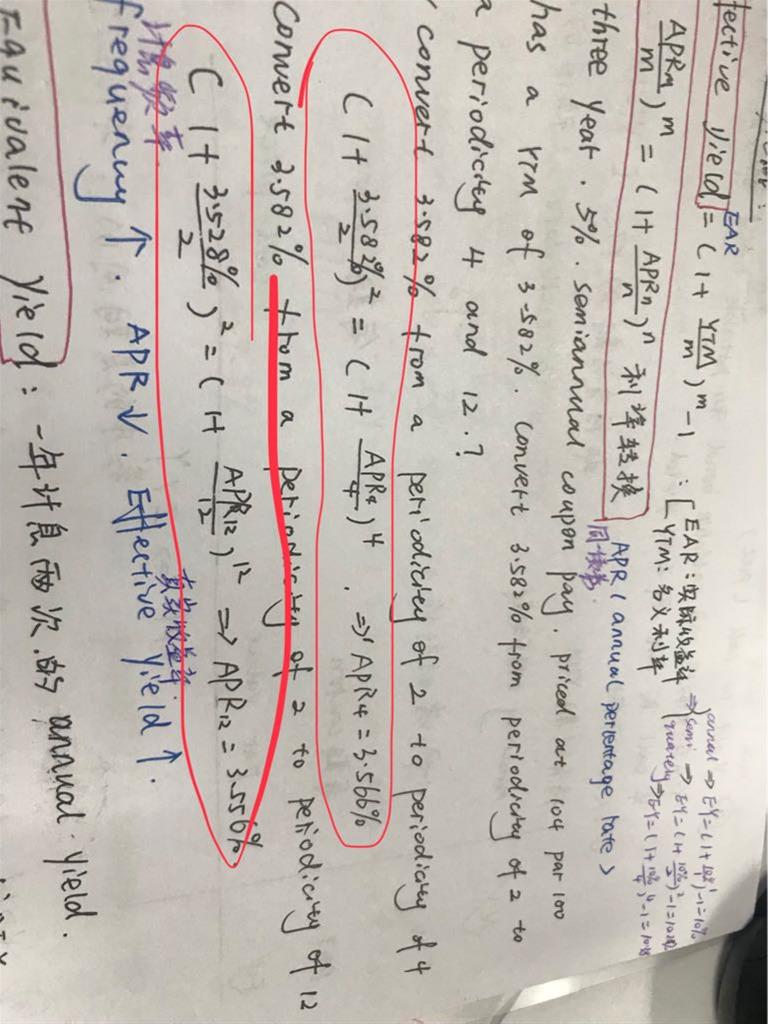 fective yield = ( 1 + YTM/m )^m - 1 : [ EAR : 实际收益率
EAR
YTM : 名义利率
annual ⇒ EY = ( 1 + 10%/1 )^1 - 1 = 10%
⇒ semi ⇒ EY = ( 1 + 10%/2 )^2 - 1 =
⇒ EY = ( 1 + 10%/4 )^4 - 1 =
APRm/m )^m = ( 1 + APRn/n )^n 利率转换
APR ( annual percentage rate )
three year . 5% . semiannual coupon pay . priced at 104 par 100
has a YTM of 3.582% . convert 3.582% from periodicity of 2 to
a periodicity 4 and 12 . ?
convert 3.582% from a periodicity of 2 to periodicity of 4
( 1 + 3.582%/2 )^2 = ( 1 + APR4/4 )^4 . ⇒ APR4 = 3.566%
Convert 3.582% from a periodicity of 2 to periodicity of 12
( 1 + 3.528%/2 )^2 = ( 1 + APR12/12 )^12 ⇒ APR12 = 3.556%
计息频率 真实收益率
frequency ↑ . APR ↓ . Effective yield ↑ .
Equivalent yield : 一年计息两次的 annual yield .